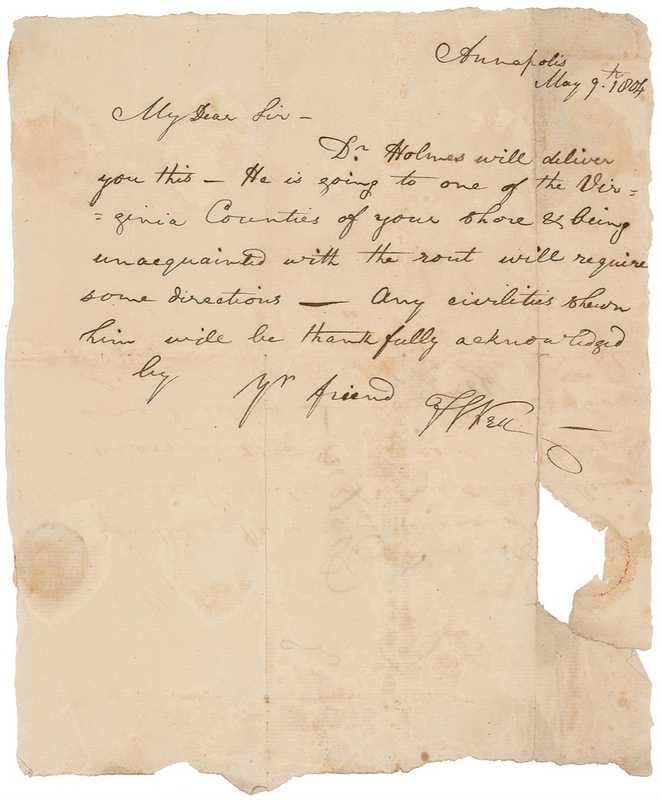 Annapolis
May 9.th 1804
My Dear Sir –
Dr. Holmes will deliver
you this – He is going to one of the Vir=
=ginia Counties of your shore & being
unacquainted with the rout will require
some directions — Any civilities shewn
him will be thankfully acknowledged
by yr friend FSKey —